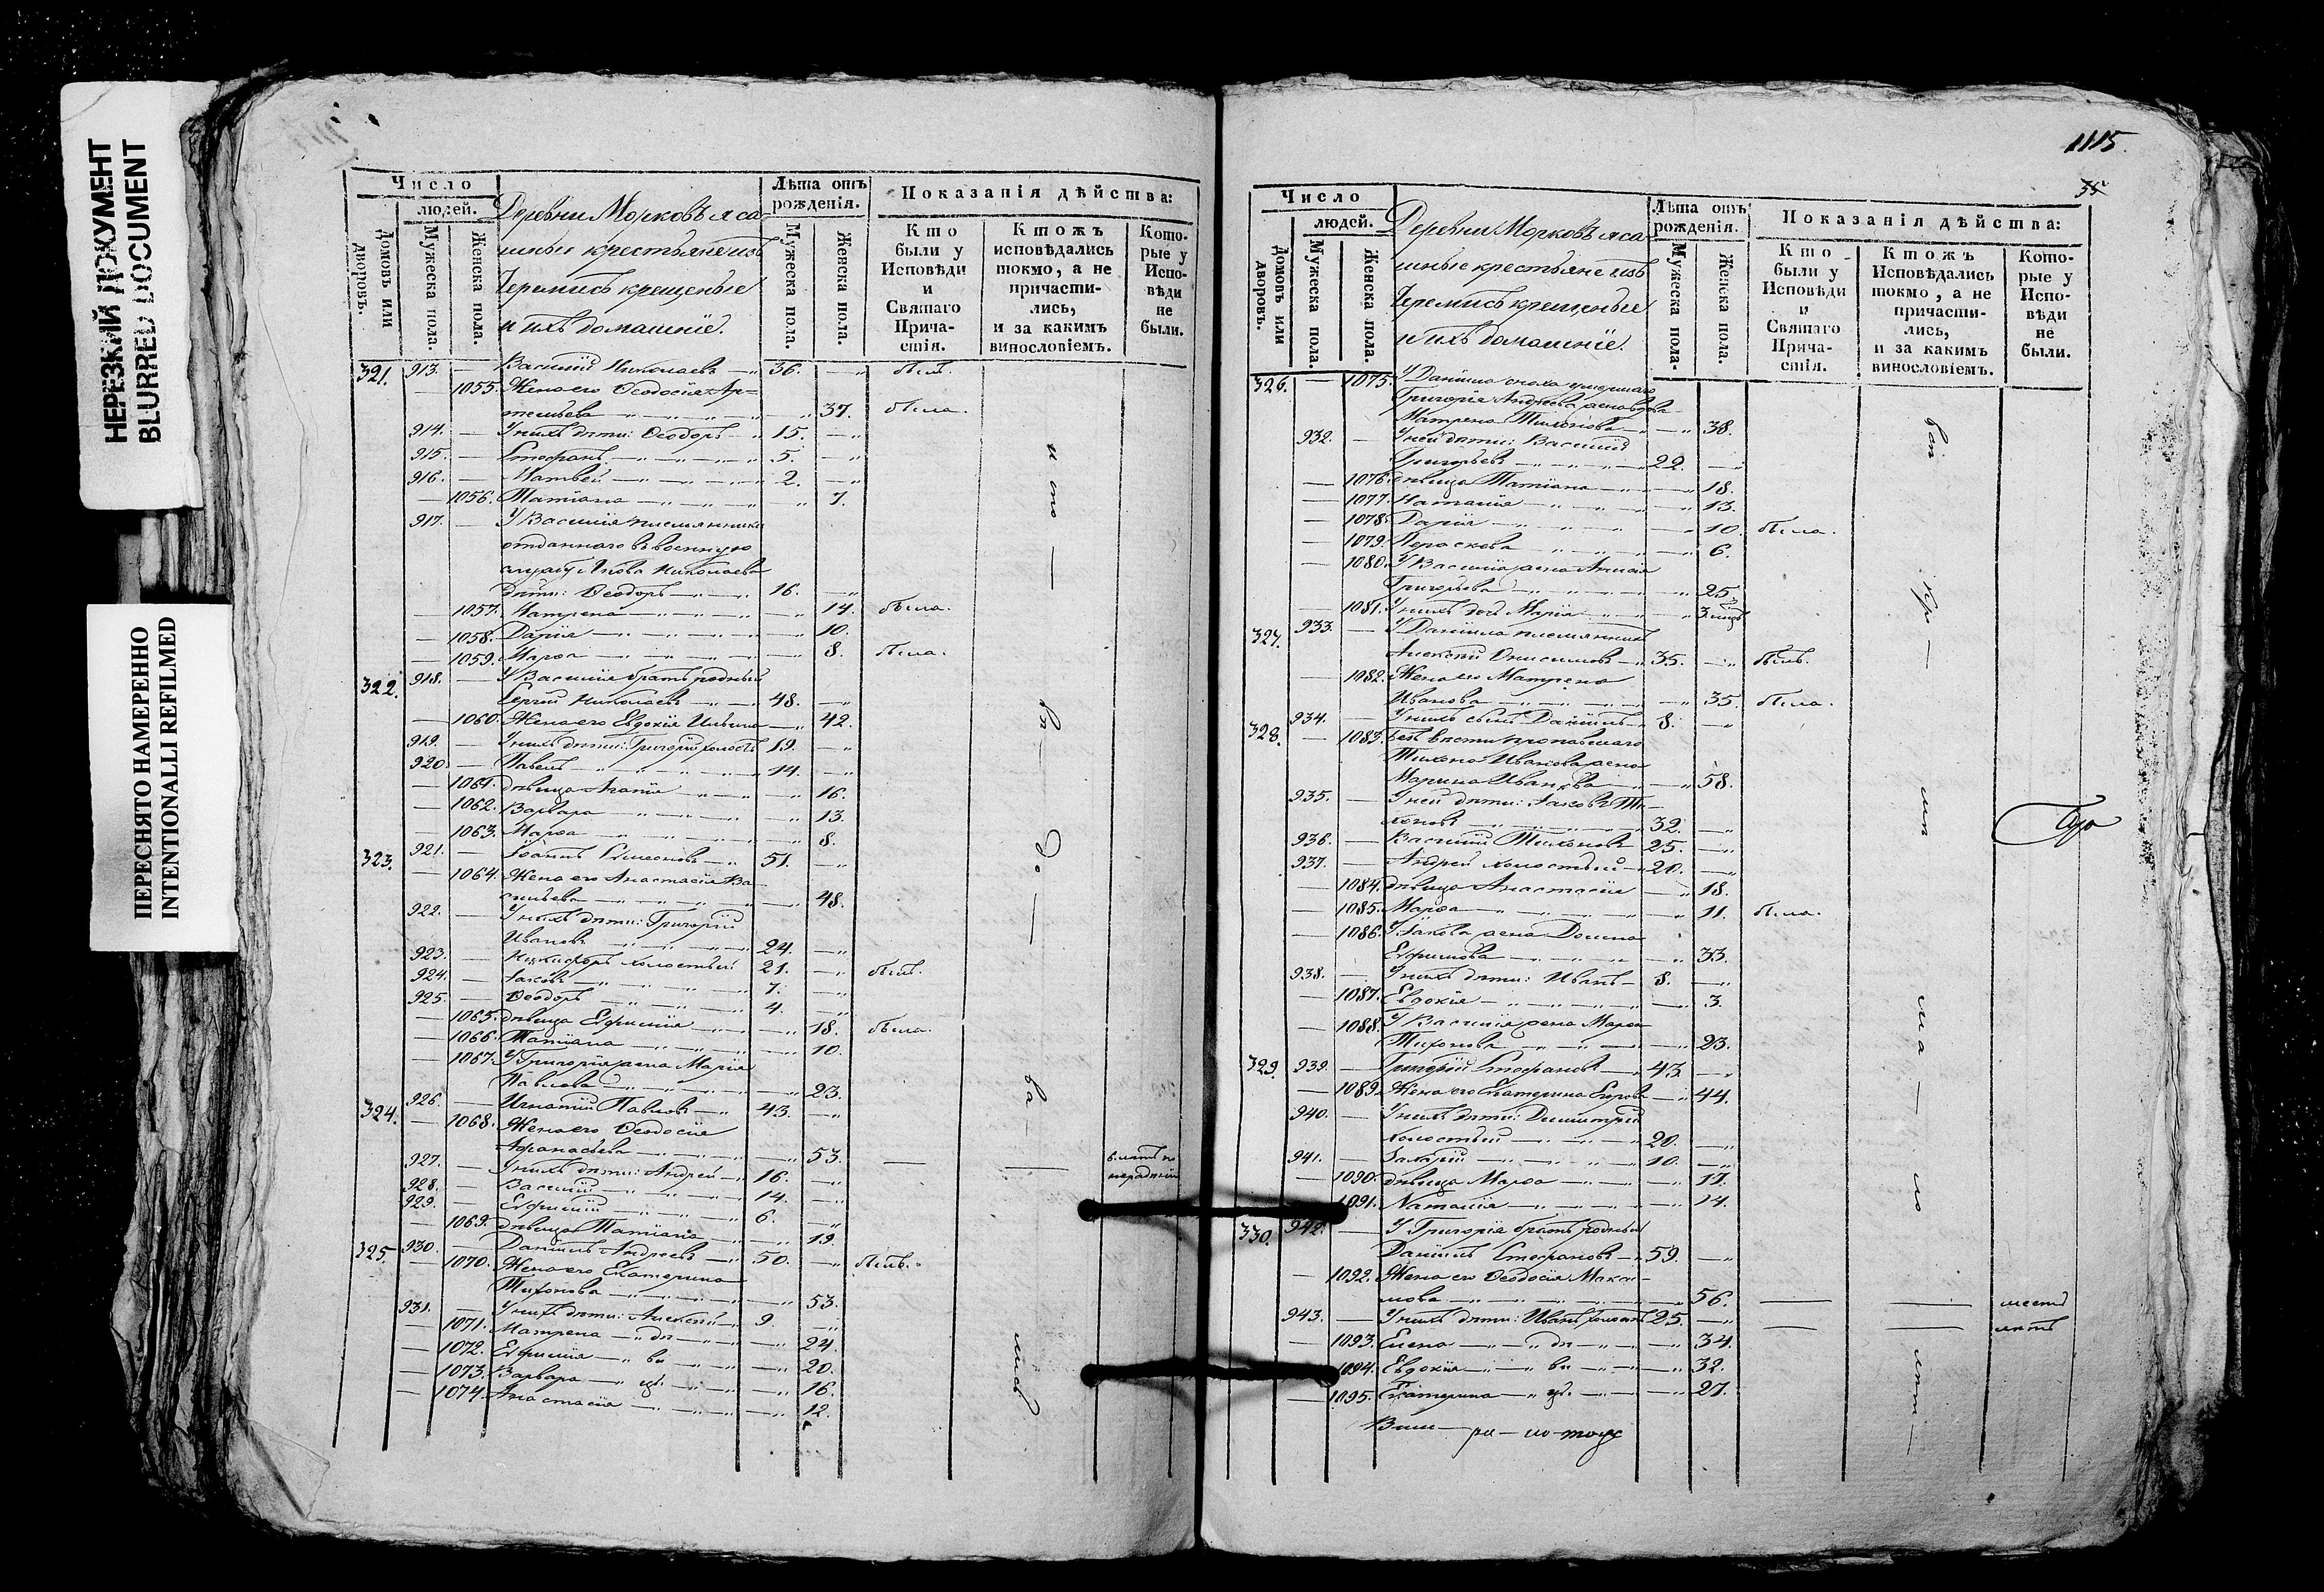 НЕРЕЗКИЙ ДОКУМЕНТ
BLURRED DOCUMENT
ПЕРЕСНЯТО НАМЕРЕННО
INTENTIONALLI REFILMED
Число
людей.
Домовъ или дворовъ.
Мужеска пола.
Женска пола.
Деревни Морковъ яса-
шныя крестьяне изъ
Черемисъ крещеныя
и ихъ домашніе.
Лѣта отъ рожденія.
Мужеска пола.
Женска пола.
Показанія дѣйства:
Кто были у Исповѣди и Святаго Причастія.
Ктожъ исповѣдались токмо, а не причастились, и за какимъ винословіемъ.
Которые у Исповѣди не были.
321. 913. — Василій Николаевъ — 36. — былъ.
— 1055. Жена его Ѳеодосія Ар-
темьева — 37. была.
914. — У нихъ дѣти: Ѳеодоръ — 15. —
915. — Стефанъ — 5. —
916. — Матвей — 2. —
— 1056. Татіана — 7.
917. — У Василія племянника
отданнаго въ военную
службу Якова Николаева
дѣти: Ѳеодоръ — 16. —
— 1057. Матрена — 14. была.
— 1058. Дарія — 10.
— 1059. Марѳа — 8. была.
322. 918. — У Василія братъ родный
Сергій Николаевъ — 48. —
— 1060. Жена его Евдокія Ильина — 42.
919. — У нихъ дѣти: Григорій холостъ 19. —
920. — Павелъ — 14. —
— 1061. дѣвица Агапія — 16.
— 1062. Варвара — 13.
— 1063. Марѳа — 8.
323. 921. — Іоаннъ Симеоновъ — 51. —
— 1064. Жена его Анастасія Ва-
сильева — 48.
922. — У нихъ дѣти: Григорій
Ивановъ — 24. —
923. — Никифоръ холостый 21. — былъ.
924. — Іаковъ — 7. —
925. — Ѳеодоръ — 4. —
— 1065. дѣвица Евфимія — 18. была.
— 1066. Татіана — 10.
— 1067. У Григорія жена Марія
Павлова — 23.
324. 926. — Игнатій Павловъ — 43. —
— 1068. Жена его Ѳеодосія
Афанасьева — 53. — —
927. — У нихъ дѣти: Андрей — 16. —
928. — Василій — 14. —
929. — Евфимій — 6. —
— 1069. дѣвица Татіана — 19.
325. 930. — Даніилъ Андреевъ — 50. — былъ.
— 1070. Жена его Екатерина
Тихонова — 53.
931. — У нихъ дѣти: Алексѣй — 9. —
— 1071. Матрена — дѣ — 24.
— 1072. Евфимія — ви — 20.
— 1073. Варвара — цы — 16.
— 1074. Анастасія — 12.
1115.
35
Число
людей.
Домовъ или дворовъ.
Мужеска пола.
Женска пола.
Деревни Морковъ яса-
шные крестьяне изъ
Черемисъ крещеныя
и ихъ домашніе.
Лѣта отъ рожденія.
Мужеска пола.
Женска пола.
Показанія дѣйства:
Кто были у Исповѣди и Святаго Причастія.
Ктожъ Исповѣдались токмо, а не причастились, и за какимъ винословіемъ.
Которые у Исповѣди не были.
326. — 1075. У Даніила сноха умершаго
Григорія Андреева жена вдова
Матрена Тихонова — 38.
932. — У ней дѣти: Василій
Григорьевъ — 22. —
— 1076. дѣвица Татіана — 18.
— 1077. Наталія — 13.
— 1078. Дарія — 10. была.
— 1079. Параскева — 6.
— 1080. У Василія жена Анисія
Григорьева — 25.
— 1081. У нихъ дочь Марія — 3.
327. 933. — У Даніила племянникъ
Алексѣй Онисимовъ — 35. — былъ.
— 1082. Жена его Матрена
Иванова — 35. была.
934. — У нихъ сынъ Даніилъ — 8. —
328. — 1083. Безъ вѣсти пропавшаго
Тихона Иванова жена
Марина Иванова — 58.
935. — У ней дѣти: Іаковъ Ти-
хоновъ — 32. —
936. — Василій Тихоновъ 25. —
937. — Андрей холостый — 20. —
— 1084. дѣвица Анастасія — 18.
— 1085. Марѳа — 11. была.
— 1086. У Іакова жена Домна
Ефимова — 33.
938. — У нихъ дѣти: Иванъ — 8. —
— 1087. Евдокія — 3.
— 1088. У Василія жена Марѳа
Тихонова — 23.
329. 939. — Григорій Стефановъ — 43. —
— 1089. Жена его Екатерина Егорова — 44.
940. — У нихъ дѣти: Димитрій
холостый — 20. —
941. — Захарій — 10. —
— 1090. дѣвица Марѳа — 17.
— 1091. Наталія — 14.
330. 942. — У Григорія братъ родный
Даніилъ Стефановъ — 59. —
— 1092. Жена его Ѳеодосія Макси-
мова — 56. — —
943. — У нихъ дѣти: Иванъ холостъ 25. — — —
— 1093. Елена — дѣ — 34.
— 1094. Евдокія — ви — 32.
— 1095. Екатерина — цы — 27.